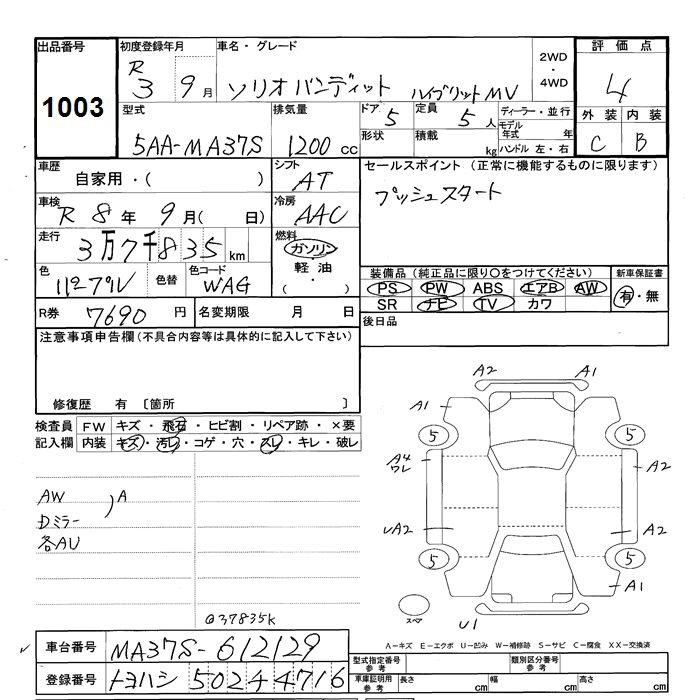 出品番号 初度登録年月 車名・グレード 2WD・4WD 評価点
1003 R 3 9月 ソリオバンディット ハイブリットMV 4
型式 排気量 ドア 5 定員 5人 ディーラー・並行 外装 内装
5AA-MA37S 1200cc 形状 積載 kg モデル年式 年 ハンドル 左・右 C B
車歴 シフト セールスポイント (正常に機能するものに限ります)
自家用・( ) AT プッシュスタート
車検 冷房
R 8年 9月( 日) AAC
走行 燃料
3万7千835km ガソリン・軽油・( )
色 色替 色コード 装備品(純正品に限り○をつけてください) 新車保証書
WAG PS PW ABS エアB AW 有・無
SR ナビ TV カワ
R券 7690円 名変期限 月 日 後日品
注意事項申告欄(不具合内容等は具体的に記入して下さい)
修復歴 有 〔箇所 〕
検査員 FW キズ・飛石・ヒビ割・リペア跡・×要
記入欄 内装 キズ・汚レ・コゲ・穴・スレ・キレ・破レ
AW A
Dミラー
各AU
@37835k
A2 A1
A1
5 5
A4 A2
ワレ
UA2 A2
5 5
A1
スペア U1
A-キズ E-エクボ U-凹み W-補修跡 S-サビ C-腐食 XX-交換済
車台番号 MA37S-612129
登録番号 トヨハシ 502 4 4716
型式指定番号 参考 類別区分番号 参考
車庫証明用 参考 長さ cm 幅 cm 高さ cm